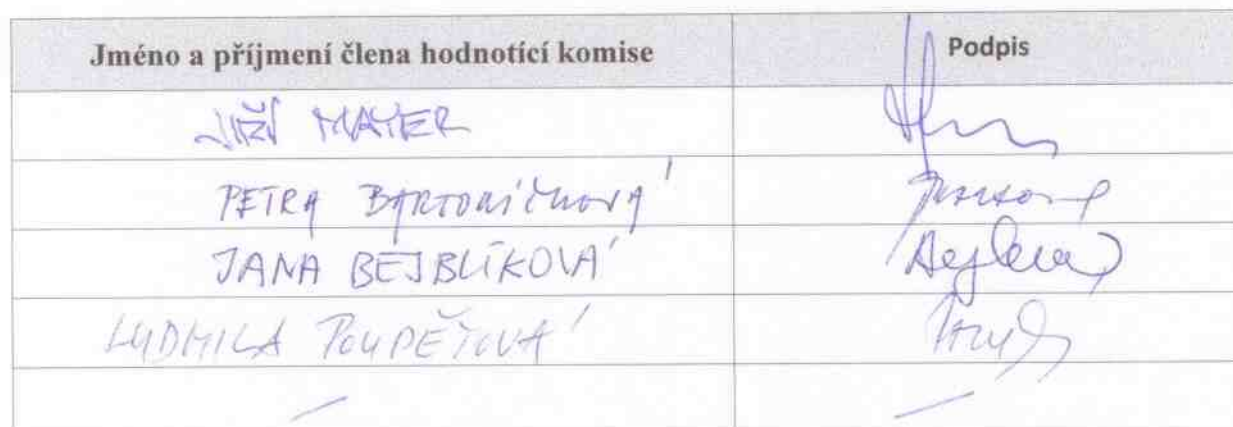 Jméno a příjmení člena hodnotící komise Podpis
JIŘÍ MAYER
PETRA BARTONÍČKOVÁ
JANA BEJBLÍKOVÁ
LUDMILA POUPĚTOVÁ